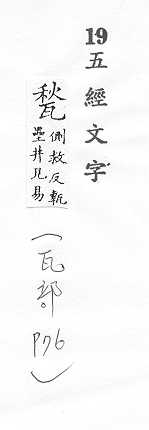 19 五經文字
甃 側救反甎
壘井見易
（瓦部。P76）